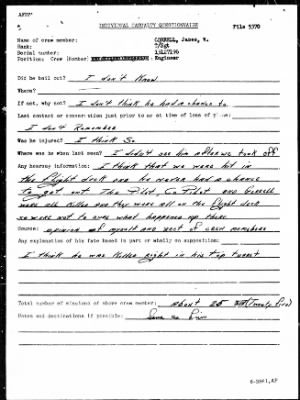 AFPPA
INDIVIDUAL CASUALTY QUESTIONNAIRE File 5370
Name of crew member: James, W.
Rank: T/Sgt
Serial number:
Position: Crew Engineer
Did he bail out? I don't Know
Where?
If not, why not? I don't think he had a chance to
Last contact or conversation just prior to or at time of loss of plane:
I don't Remember
Was he injured? I think So
Where was he when last seen? I didn't see him after we took off
Any hearsay information: I think that we were hit in
the flight deck and he never had a chance
to get out The Pilot, Co Pilot and
were all killed and they were all on the flight deck
so were not to over what happened up there
Source: opinion of myself and rest of crew members
Any explanation of his fate based in part or wholly on supposition:
I think he was Killed right in his top turret
Total number of missions of above crew member: About 25 (Twenty five)
Dates and destinations if possible: Same as